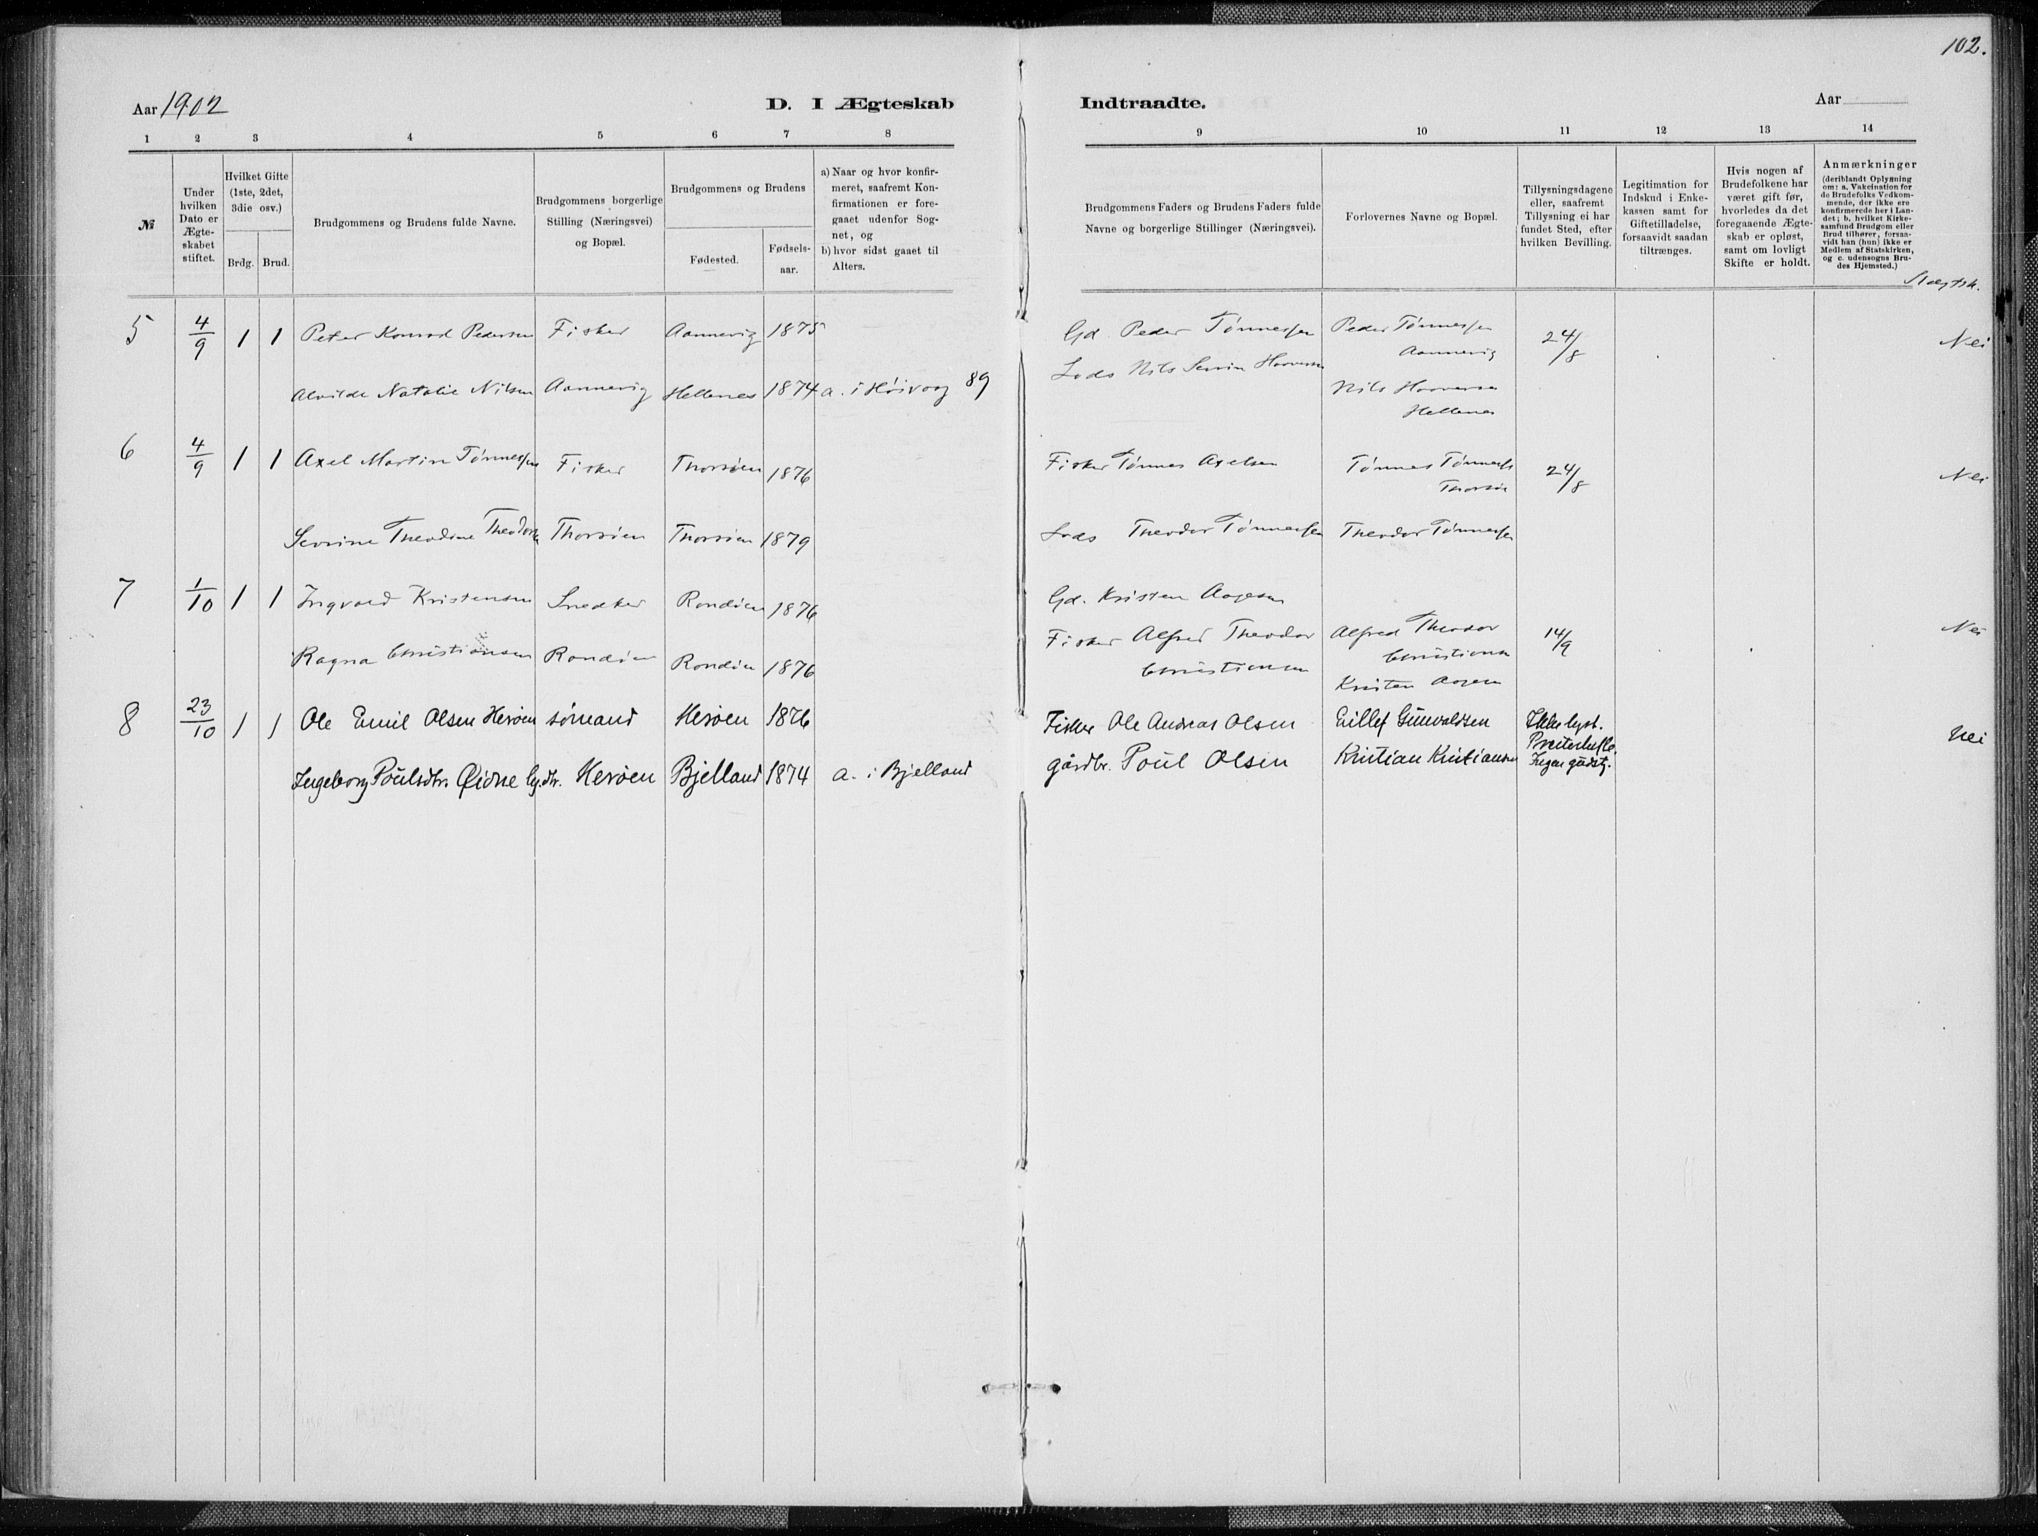 102.
Aar 1902
D. I Ægteskab
Indtraadte.
Aar
1 2 3 4 5 6 7 8
9 10 11 12 13 14
№
Under hvilken Dato er Ægteskabet stiftet.
Hvilket Gifte (1ste, 2det, 3die osv.)
Brdg. Brud.
Brudgommens og Brudens fulde Navne.
Brudgommens borgerlige Stilling (Næringsvei) og Bopæl.
Brudgommens og Brudens
Fødested.
Fødselsaar.
a) Naar og hvor konfirmeret, saafremt Konfirmationen er foregaaet udenfor Sognet, og
b) hvor sidst gaaet til Alters.
Brudgommens Faders og Brudens Faders fulde Navne og borgerlige Stillinger (Næringsvei).
Forlovernes Navne og Bopæl.
Tillysningsdagene eller, saafremt Tillysning ei har fundet Sted, efter hvilken Bevilling.
Legitimation for Indskud i Enkekassen samt for Giftetilladelse, forsaavidt saadan tiltrænges.
Hvis nogen af Brudefolkene har været gift før, hvorledes da det foregaaende Ægteskab er opløst, samt om lovligt Skifte er holdt.
Anmærkninger (deriblandt Oplysning om: a. Vakcination for de Brudefolks Vedkommende, der ikke ere konfirmerede her i Landet; b. hvilket Kirkesamfund Brudgom eller Brud tilhører, forsaavidt han (hun) ikke er Medlem af Statskirken, og c. udensogns Brudes Hjemsted.)
Slægtsk.
5 4/9 1 1 Peter Konrad Pedersen Fisker Aannevig 1875 Gd. Peder Tønnessen Peder Tønnessen Aannevig 24/8 Nei
Alvilde Natalie Nilsen Aannevig Hellenes 1874 a. i Høivog 89 Lods Nils Hellenes
6 4/9 1 1 Axel Martin Tønnessen Fisker Thorsøen 1876 Fisker Tønnes Axelsen Tønnes 24/8 Nei
Severine Theodine Thorsøen Thorsøen 1879 Lods Theodor Tønnessen Theodor Tønnessen
7 1/10 1 1 Ingvald Kristensen Snedker Randøen 1876 Gd. Kristen Aagesen
Ragna Christiansen Randøen Randøen 1876 Fisker Alfred Theodor Christiansen Alfred Theodor Christiansen 14/9 Nei
Kristen Aagesen
8 23/10 1 1 Ole Emil Olsen Herøen sømand Herøen 1876 Fisker Ole Andreas Olsen Eillef Gunvaldsen Ikke lyst. Nei
Ingeborg Poulsdtr. Øidne Herøen Bjelland 1874 a. i Bjelland gårdbr. Poul Olsen Kristian Kristiansen